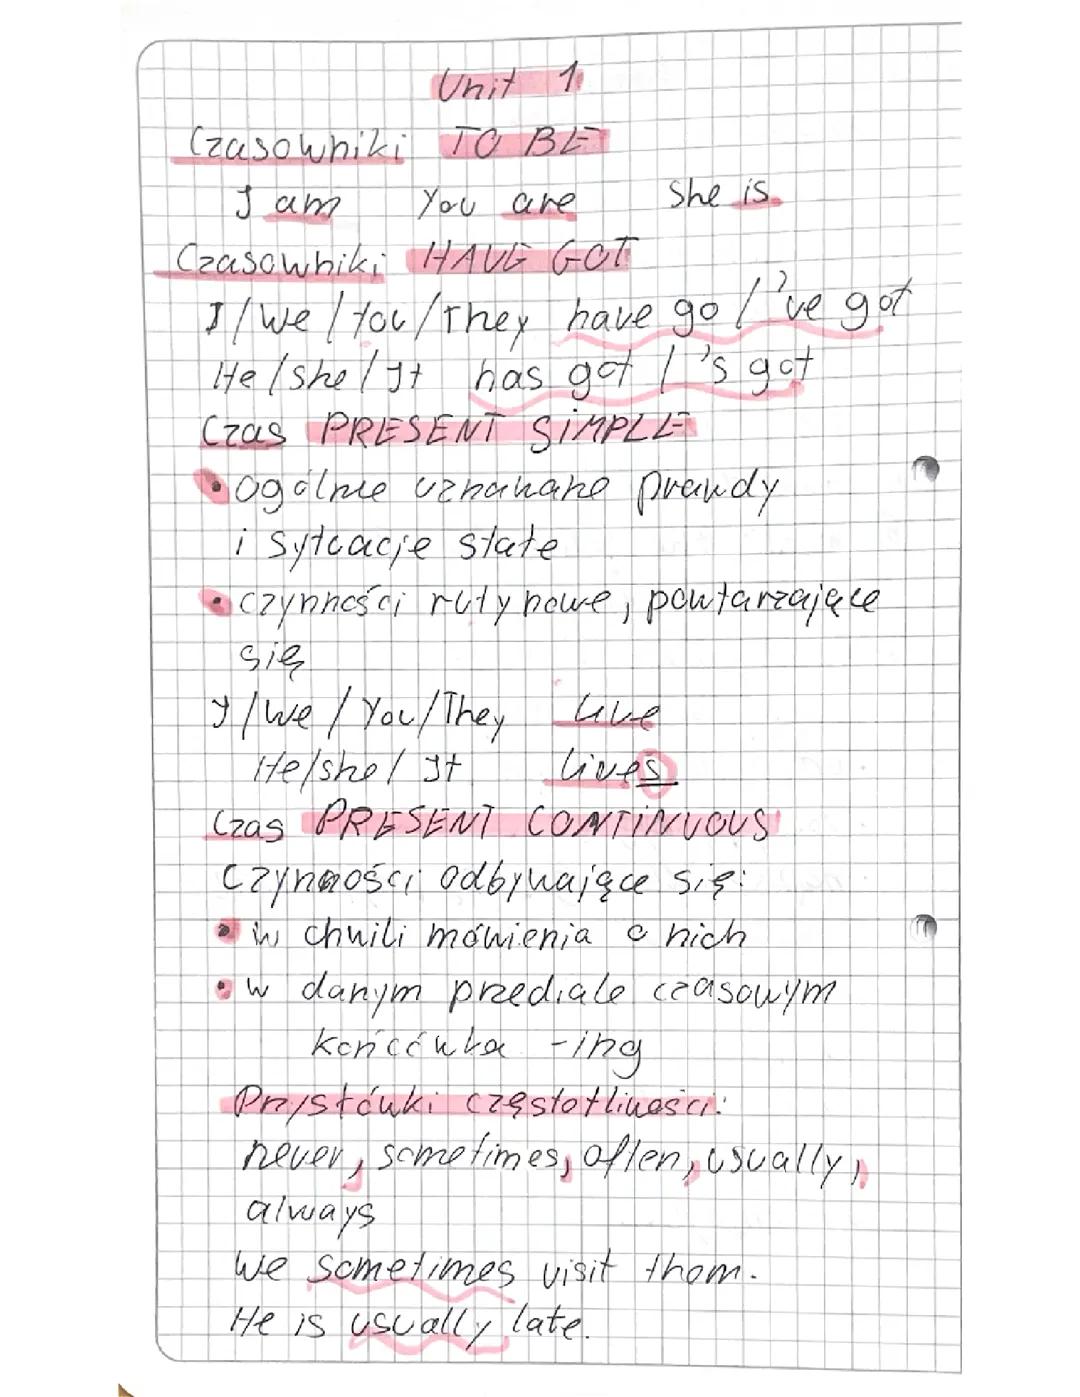 Unit 1
Czasowniki TO BE
I am You are She is
Czasowniki HAVE GOT
I/We/You/They have go / 've got
He/she/It has got / 's got
Czas PRESENT SIMPLE
• Ogólnie uznawane prawdy
i sytuacje stałe
• czynności rutynowe, powtarzające
się
I/We/You/They live
He/she/It lives
Czas PRESENT CONTINUOUS
Czynności odbywające się:
• w chwili mówienia o nich
• w danym przediale czasowym
końcówka -ing
Przysłówki częstotliwości:
never, sometimes, often, usually,
always
We sometimes visit them.
He is usually late.